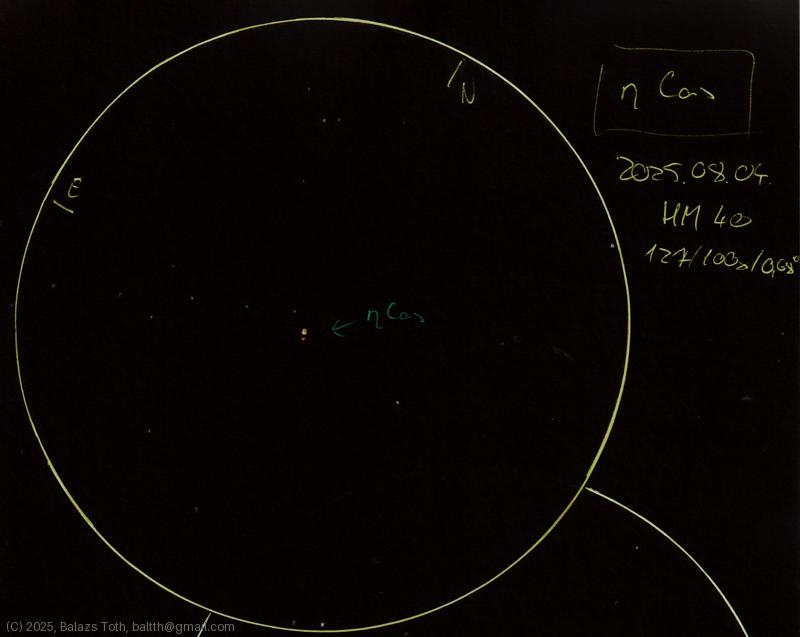 N
E
η Cas
2025.08.04.
HM 40
127/100x/0,68°
η Cas
(C) 2025, Balazs Toth, baltth@gmail.com